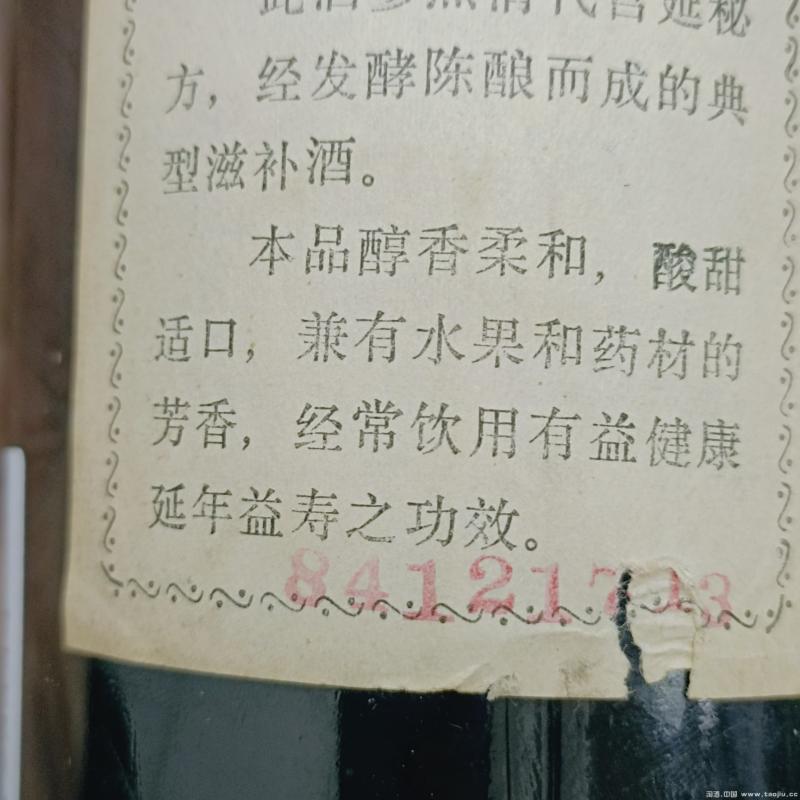 此酒参照清代宫延秘
方，经发酵陈酿而成的典
型滋补酒。
本品醇香柔和，酸甜
适口，兼有水果和药材的
芳香，经常饮用有益健康
延年益寿之功效。
841217
3
淘酒.中国 www.taojiu.cc